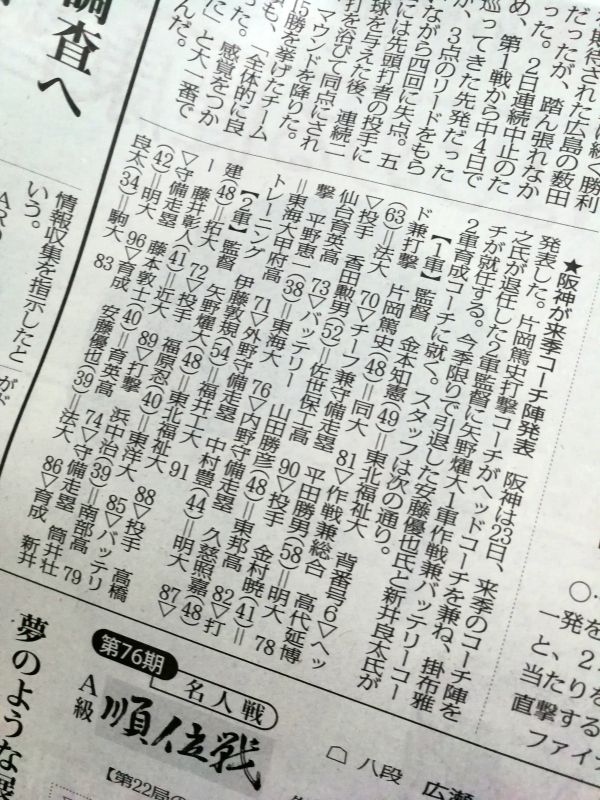 に続く勝利
が期待された広島の薮田
だったが、踏ん張れなか
った。2日連続中止のた
め、第1戦から中4日で
巡ってきた先発だった
が、3点のリードをもら
いながら四回に失点。五
回には先頭打者の投手に
四球を与えた後、連続二
塁打を浴びて同点にされ
マウンドを降りた。
15勝を挙げたチーム
「全体的に良
感覚をつか
」と大一番で
んだ。
調査へ
情報収集を指示したと
いう。
★阪神が来季コーチ陣発表 阪神は23日、来季のコーチ陣を
発表した。片岡篤史打撃コーチがヘッドコーチを兼ね、掛布雅
之氏が退任した2軍監督に矢野燿大1軍作戦兼バッテリーコー
チが就任する。今季限りで引退した安藤優也氏と新井良太氏が
2軍育成コーチに就く。スタッフは次の通り。
【1軍】監督 金本知憲(49)=東北福祉大 背番号6▽ヘッ
ド兼打撃 片岡篤史(48)=同大 81▽作戦兼総合 高代延博
(63)=法大 70▽チーフ兼守備走塁 平田勝男(58)=明大 78
▽投手 香田勲男(52)=佐世保工高 90▽投手 金村暁(41)=
仙台育英高 73▽バッテリー 山田勝彦(48)=東邦高 82▽打
撃 平野恵一(38)=東海大 76▽内野守備走塁 久慈照嘉(48)
=東海大甲府高 71▽外野守備走塁 中村豊(44)=明大 87▽
トレーニング 伊藤敦規(54)=福井工大 91
【2軍】監督 矢野燿大(48)=東北福祉大 88▽投手 高橋
建(48)=拓大 72▽投手 福原忍(40)=東洋大 85▽バッテリ
ー 藤井彰人(41)=近大 89▽打撃 浜中治(39)=南部高 79
▽守備走塁 藤本敦士(40)=育英高 74▽守備走塁 筒井壮
(42)=明大 96▽育成 安藤優也(39)=法大 86▽育成 新井
良太(34)=駒大 83
第76期
名人戦
A級
順位戦
八段 広瀬
【第22局の
夢のような展
一発を
と、2
当たりを
直撃する
ファイナ